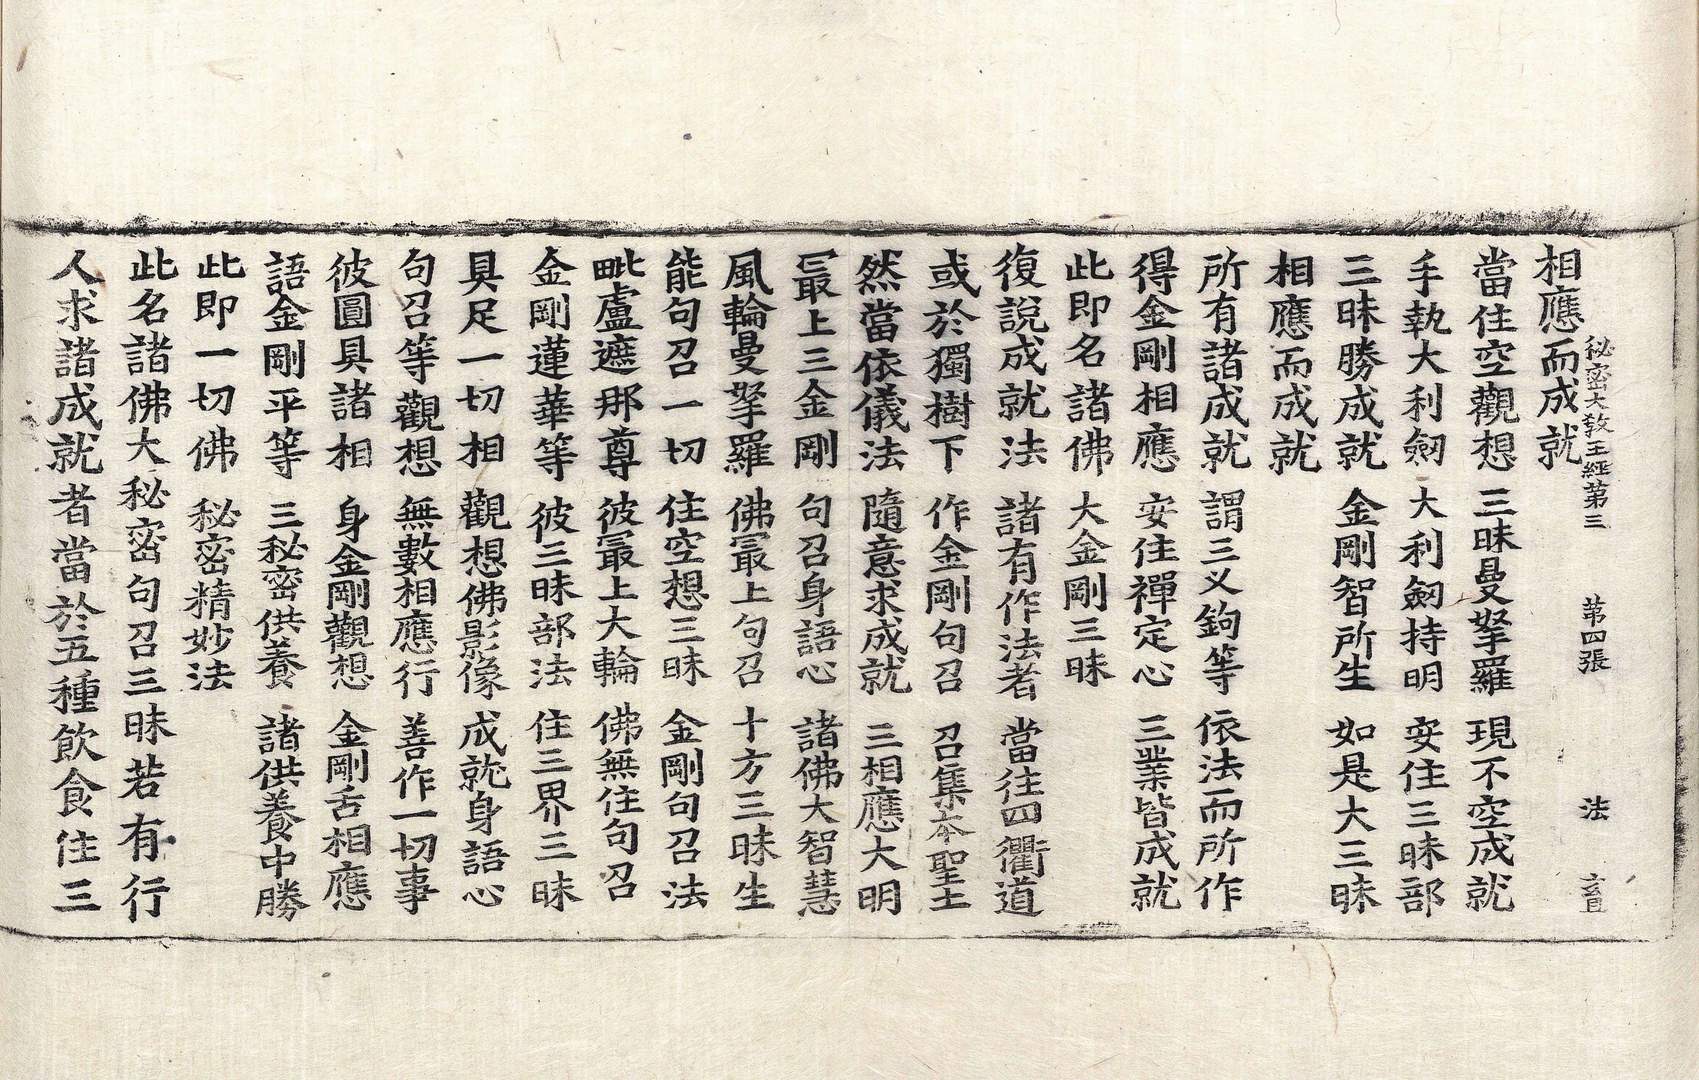 秘密大教王經第三　第四張　法　畜
相應而成就
當住空觀想　三昧曼拏羅　現不空成就
手執大利劒　大利劒持明　安住三昧部
三昧勝成就　金剛智所生　如是大三昧
相應而成就
所有諸成就　謂三叉鉤等　依法而所作
得金剛相應　安住禪定心　三業皆成就
此即名諸佛　大金剛三昧
復說成就法　諸有作法者　當往四衢道
或於獨樹下　作金剛句召　召集本聖士
然當依儀法　隨意求成就　三相應大明
最上三金剛　句召身語心　諸佛大智慧
風輪曼拏羅　佛最上句召　十方三昧生
能句召一切　住空想三昧　金剛句召法
毗盧遮那尊　彼最上大輪　佛無住句召
金剛蓮華等　彼三昧部法　住三界三昧
具足一切相　觀想佛影像　成就身語心
句召等觀想　無數相應行　善作一切事
彼圓具諸相　身金剛觀想　金剛舌相應
語金剛平等　三秘密供養　諸供養中勝
此即一切佛　秘密精妙法
此名諸佛大秘密句召三昧若有行
人求諸成就者當於五種飲食住三